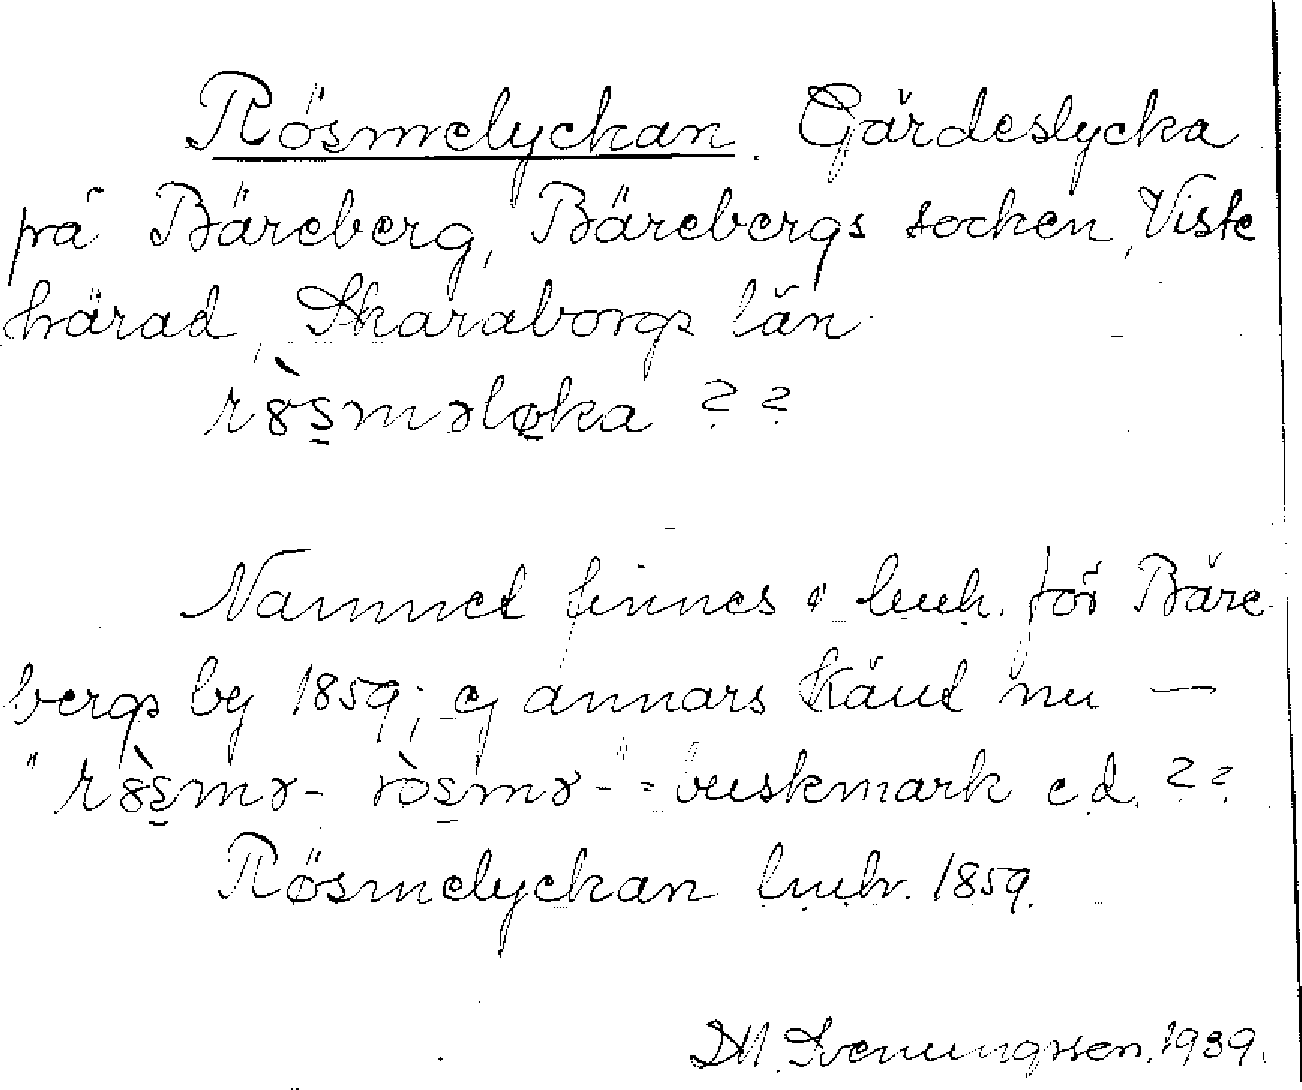 Rösmelyckan. Gärdeslycka
på Bäreberg, Bärebergs socken, Viste
härad, Skaraborgs län.
rȣ̀s̠mələ̠ka ? ?
Namnet finnes i lmh. för Bäre-
bergs by 1859; ej annars känt nu —
"rȣ̀s̠mə- ròs̠mə-" = buskmark e.d. ? ?
Rösmelyckan lmh. 1859.
DM. Svenungsson. 1939.